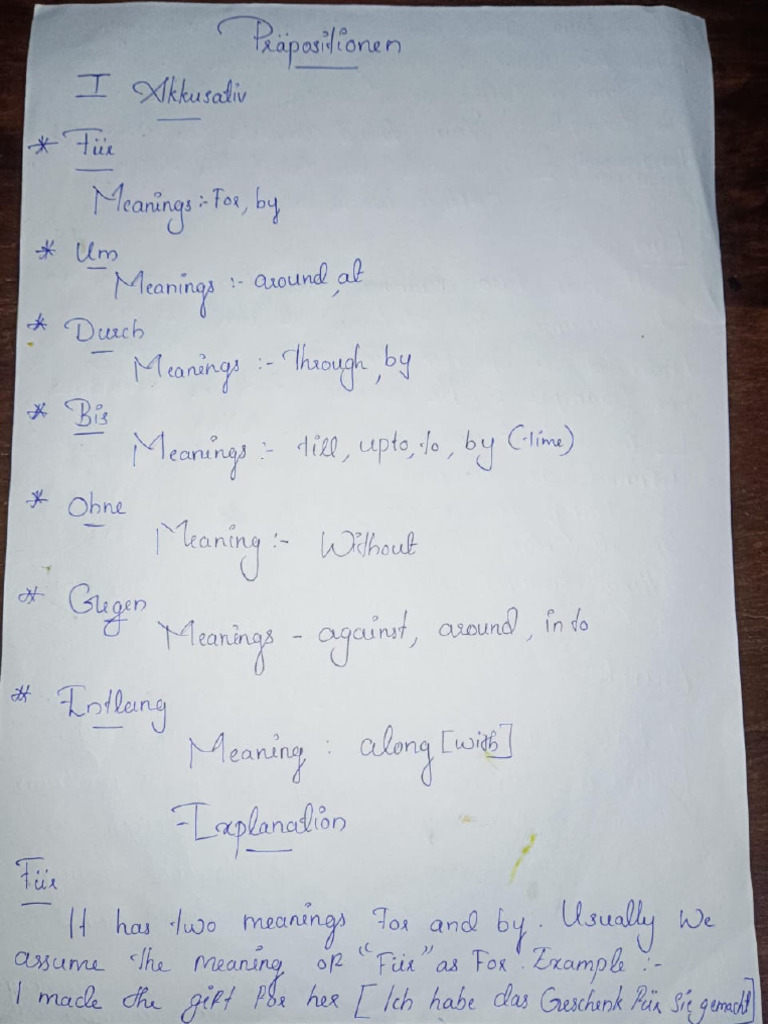 Präpositionen
I Akkusativ
* Für
Meanings :- For, by
* Um
Meanings :- around, at
* Durch
Meanings :- Through, by
* Bis
Meanings :- till, upto, to, by (time)
* Ohne
Meaning :- Without
* Gegen
Meanings - against, around, into
* Entlang
Meaning : along [with]
Explanation
Für
It has two meanings For and by. Usually We
assume the meaning of "Für" as For. Example :-
I made the gift for her [Ich habe das Geschenk für Sie gemacht]